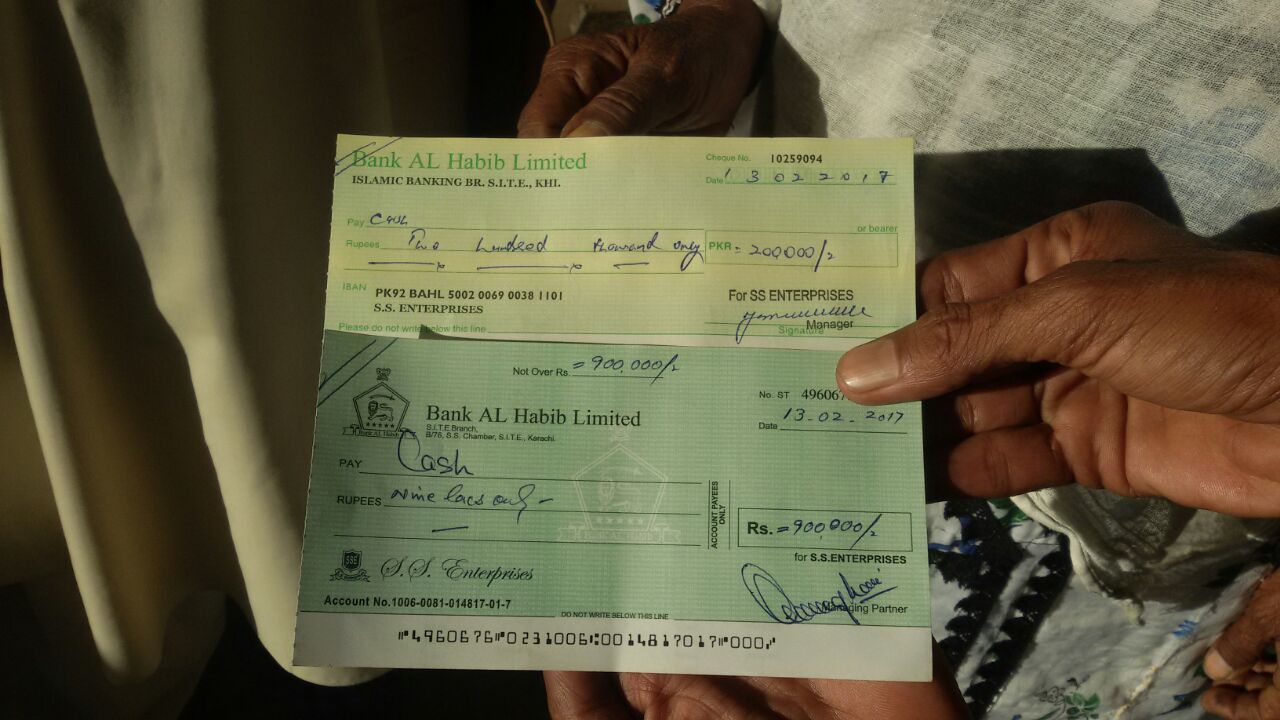 Bank AL Habib Limited
ISLAMIC BANKING BR. S.I.T.E., KHI.
Cheque No. 10259094
Date 13022017
Pay Cash
or bearer
Rupees Two Hundred Thousand only
PKR = 200000/=
IBAN PK92 BAHL 5002 0069 0038 1101
S.S. ENTERPRISES
For SS ENTERPRISES
Manager
Signature
Please do not write below this line
Not Over Rs. = 900,000/=
No. ST 49606
Bank AL Habib Limited
S.I.T.E Branch,
B/76, S.S. Chamber, S.I.T.E., Karachi.
Date 13-02-2017
Bank AL Habib
PAY Cash
RUPEES Nine lacs only -
ACCOUNT PAYEES ONLY
Rs. = 900,000/=
for S.S.ENTERPRISES
SSE S.S. Enterprises
Managing Partner
Account No.1006-0081-014817-01-7
DO NOT WRITE BELOW THIS LINE
⑈4960676⑈0231006⑆0014817017⑈000⑇